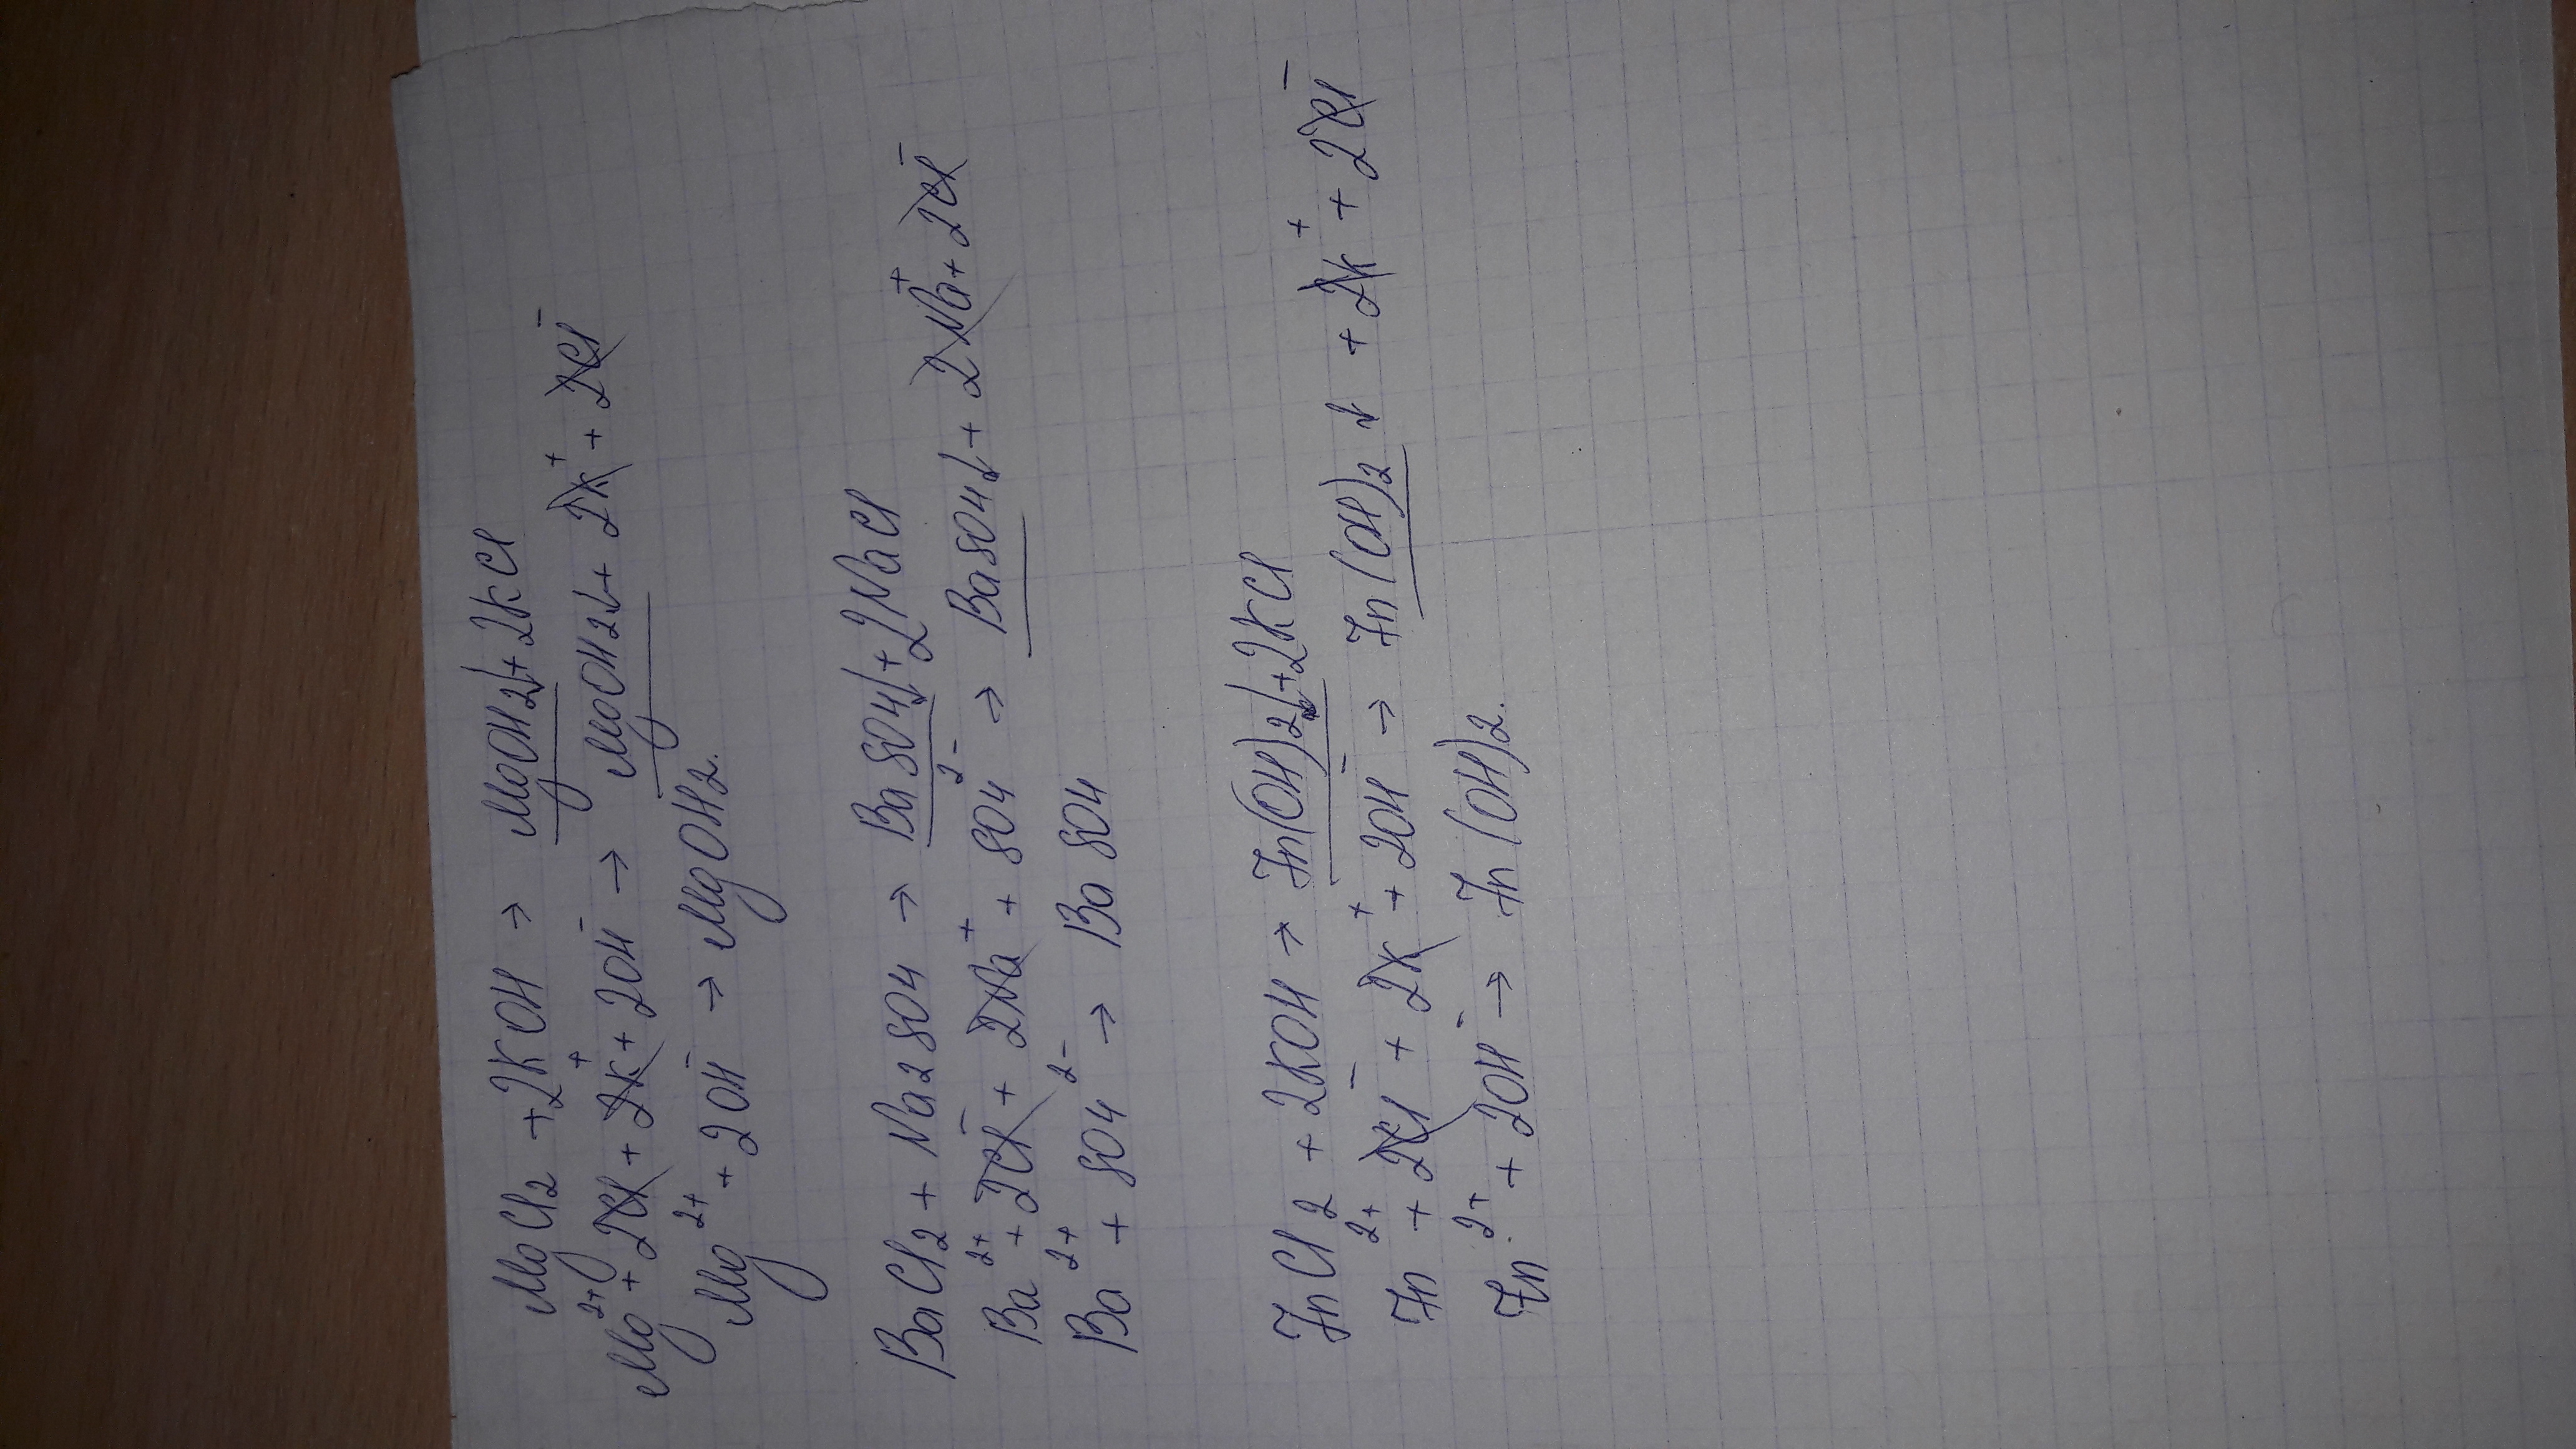 MgCl2 + 2KOH → MgOH2↓ + 2KCl
Mg²⁺ + 2Cl⁻ + 2K⁺ + 2OH⁻ → MgOH2↓ + 2K⁺ + 2Cl⁻
Mg²⁺ + 2OH⁻ → MgOH2.
BaCl2 + Na2SO4 → BaSO4↓ + 2NaCl
Ba²⁺ + 2Cl⁻ + 2Na⁺ + SO4²⁻ → BaSO4↓ + 2Na⁺ + 2Cl⁻
Ba²⁺ + SO4²⁻ → BaSO4
ZnCl2 + 2KOH → Zn(OH)2↓ + 2KCl
Zn²⁺ + 2Cl⁻ + 2K⁺ + 2OH⁻ → Zn(OH)2↓ + 2K⁺ + 2Cl⁻
Zn²⁺ + 2OH⁻ → Zn(OH)2.